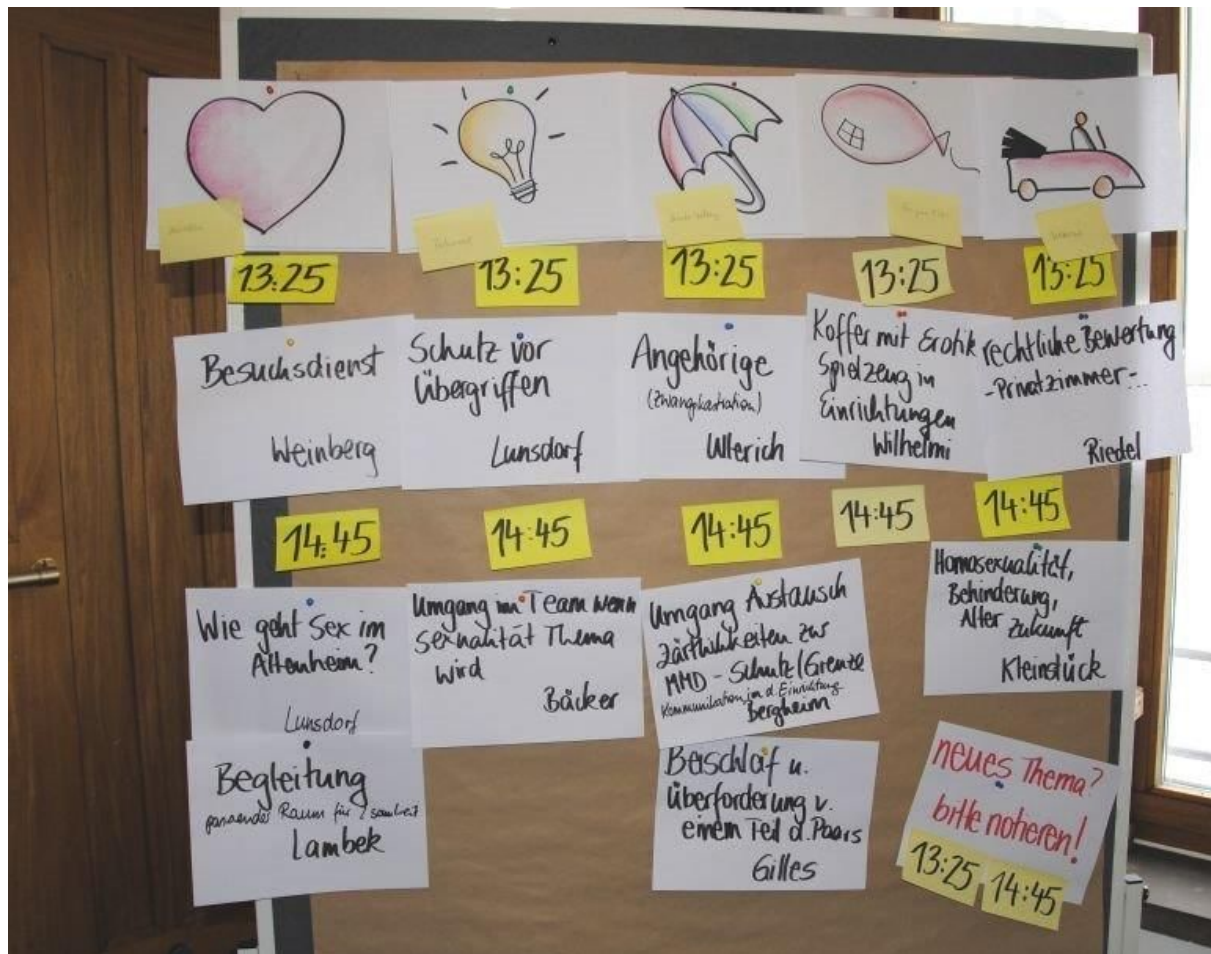 13:25
13:25
13:25
13:25
13:25
Besuchsdienst
Weinberg
Schutz vor
Übergriffen
Lunsdorf
Angehörige
(Zwangskastration)
Ulerich
Koffer mit Erotik
Spielzeug in
Einrichtungen
Wilhelmi
rechtliche Bewertung
-Privatzimmer-...
Riedel
14:45
14:45
14:45
14:45
14:45
Wie geht Sex im
Altenheim?
Lunsdorf
Umgang im Team wenn
Sexualität Thema
wird
Bäcker
Umgang Austausch
Zärtlichkeiten zur
MMD - Schutz/Grenze
Kommunikation in d. Einrichtung
Bergheim
Homosexualität,
Behinderung,
Alter Zukunft
Kleinstück
Begleitung
passender Raum für 2samkeit
Lambek
Beischlaf u.
Überforderung v.
einem Teil d. Paars
Gilles
neues Thema?
bitte notieren!
13:25
14:45